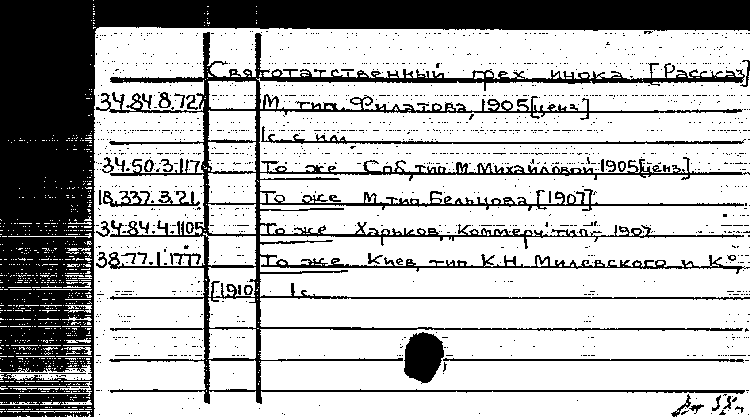 Святотатственный грех инока. [Рассказ]
34.84.8.727 М, тип. Филатова, 1905[ценз]
1с. с ил.
34.50.3.1176 То же Спб, тип. М. Михайловой, 1905[ценз.]
18.337.3.21. То же М, тип. Бельцова, [1907]
34.84.4.1105 То же Харьков, "Коммерч. тип", 1907
38.77.1.1777. То же Киев, тип. К.Н. Милевского и К°,
[1910] 1с.